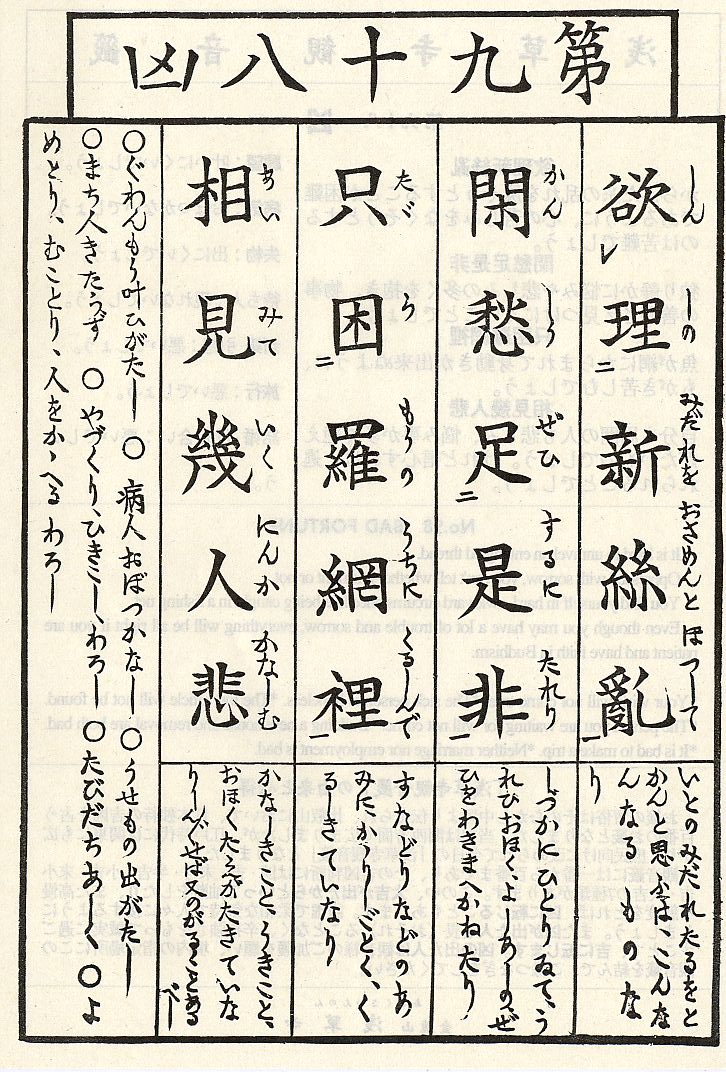 第九十八凶
欲理新絲亂
しんしのみだれをおさめんとほつして
いとのみだれたるをと
かんと思ふはこんな
んなるものな
り
閑愁足是非
かんしうぜひするにたれり
しづかにひとりゐて、う
れひおほく、よしあしのぜ
ひをわきまへかねたり
只困羅網裡
たゞらもうのうちにくるしんで
すなどりなどのあ
みにかゝりしごとく、く
るしきていなり
相見幾人悲
あいみていくにんかかなしむ
かなしきこと、うきこと、
おほくたえがたきていな
りしんじせば又のがるゝことある
べし
〇ぐわんもう叶ひがたし〇病人おぼつかなし〇うせもの出がたし
〇まち人きたらず〇やづくり、ひきこし、わろし〇たびだちあしく〇よ
めとり、むことり、人をかゝへるわろし